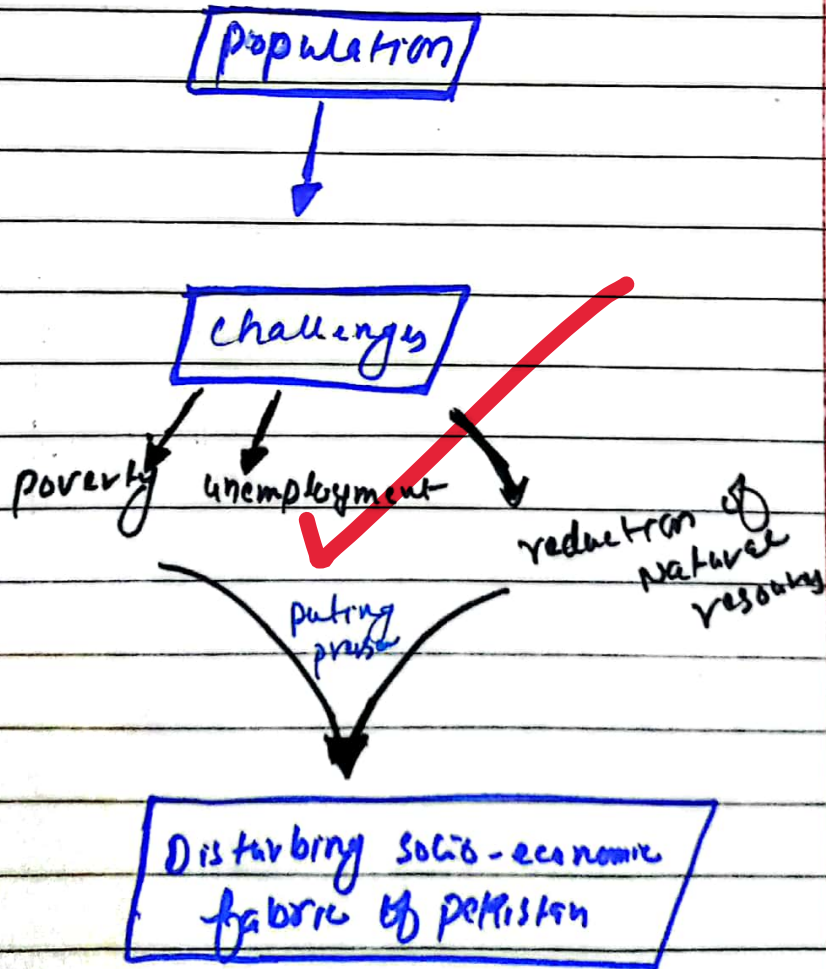 population
challenges
poverty
unemployment
reduction of
Natural
resources
puting
Disturbing socio-economic
fabric of pakistan